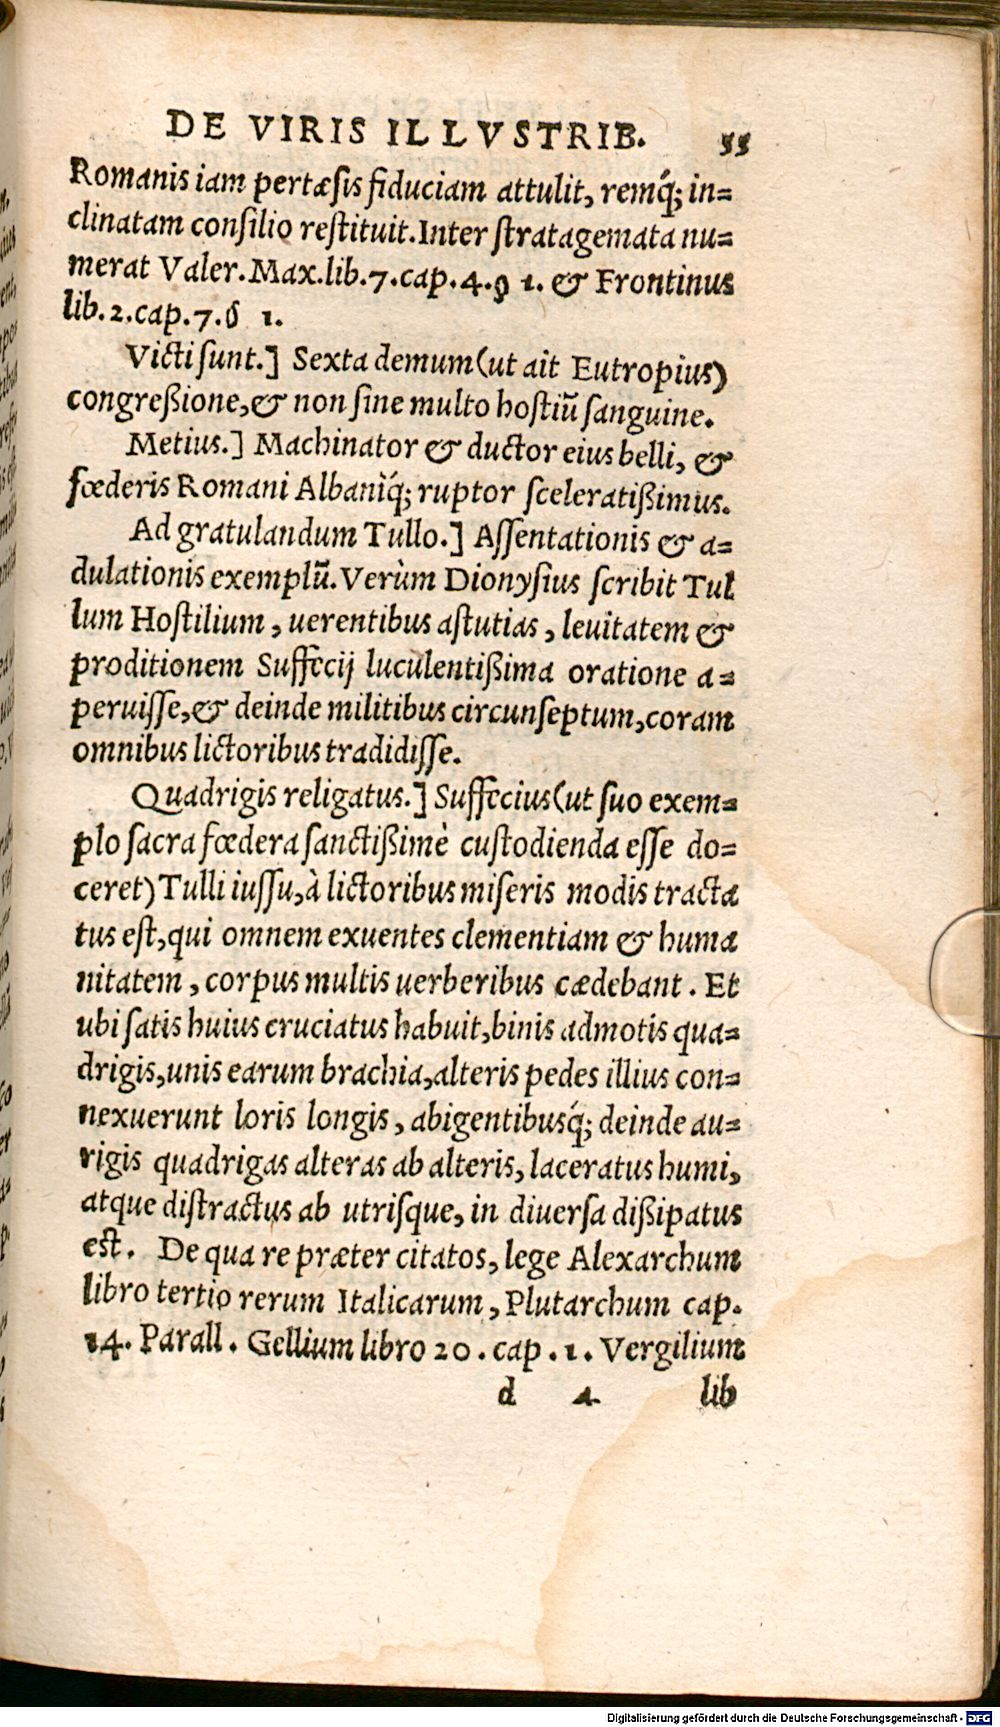 DE VIRIS ILLVSTRIB. 55
Romanis iam pertæsis fiduciam attulit, remq́; in=
clinatam consilio restituit. Inter stratagemata nu=
merat Valer. Max. lib. 7. cap. 4. § 1. & Frontinus
lib. 2. cap. 7. § 1.
Victi sunt.] Sexta demum (ut ait Eutropius)
congreßione, & non sine multo hostiũ sanguine.
Metius.] Machinator & ductor eius belli, &
fœderis Romani Albaniq́; ruptor sceleratißimus.
Ad gratulandum Tullo.] Assentationis & a=
dulationis exemplũ. Verùm Dionysius scribit Tul
lum Hostilium, uerentibus astutias, leuitatem &
proditionem Suffecij luculentißima oratione a=
peruisse, & deinde militibus circunseptum, coram
omnibus lictoribus tradidisse.
Quadrigis religatus.] Suffecius (ut suo exem=
plo sacra fœdera sanctißimè custodienda esse do=
ceret) Tulli iussu, à lictoribus miseris modis tracta
tus est, qui omnem exuentes clementiam & huma
nitatem, corpus multis uerberibus cædebant. Et
ubi satis huius cruciatus habuit, binis admotis qua=
drigis, unis earum brachia, alteris pedes illius con=
nexuerunt loris longis, abigentibusq́; deinde au=
rigis quadrigas alteras ab alteris, laceratus humi,
atque distractus ab utrisque, in diuersa dißipatus
est. De qua re præter citatos, lege Alexarchum
libro tertio rerum Italicarum, Plutarchum cap.
14. Parall. Gellium libro 20. cap. 1. Vergilium
d 4 lib
Digitalisierung gefördert durch die Deutsche Forschungsgemeinschaft - DFG